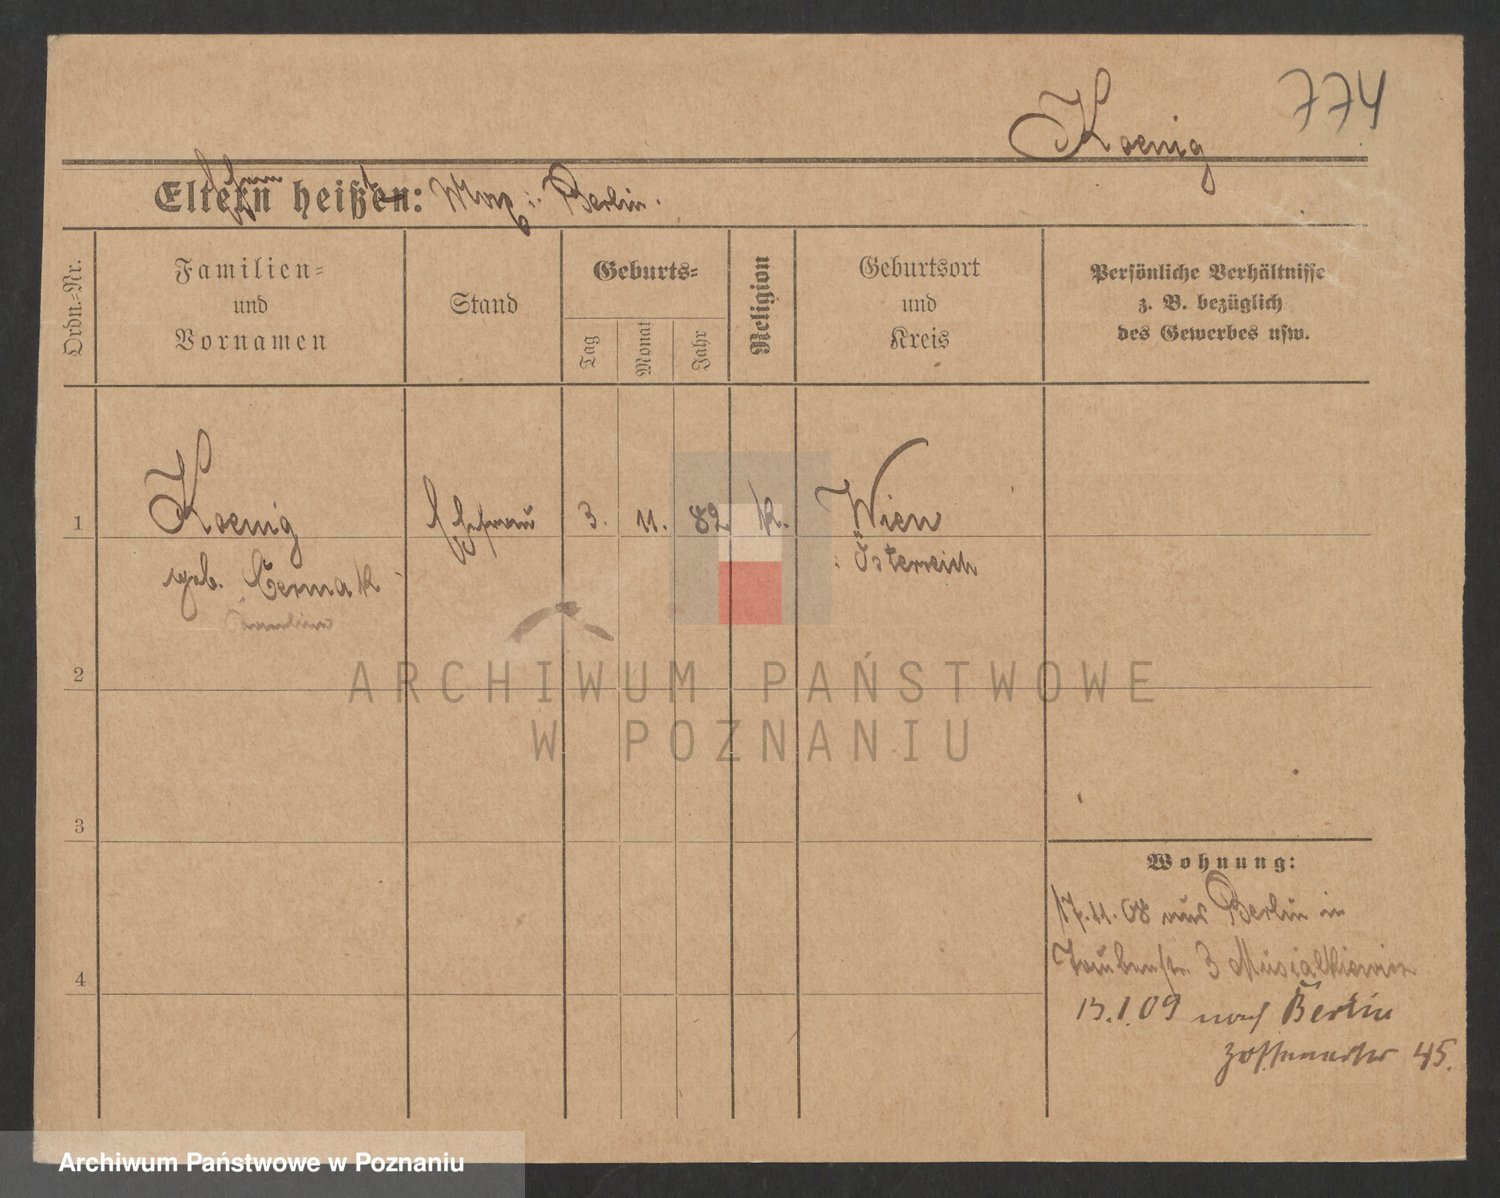 774
Koenig
Eltern heißen: Max i. Berlin.
Ordn.-Nr.
Familien-
und
Vornamen
Stand
Geburts-
Tag
Monat
Jahr
Religion
Geburtsort
und
Kreis
Persönliche Verhältnisse
z. B. bezüglich
des Gewerbes usw.
1
Koenig
Ehefrau
3.
11.
82
k.
Wien
geb. Cermak
Österreich
2
3
4
Wohnung:
17.11.08 aus Berlin in
Taubenstr. 3 Musialkiewicz
15.1.09 nach Berlin
Zossenerstr 45.
ARCHIWUM PAŃSTWOWE
W POZNANIU
Archiwum Państwowe w Poznaniu